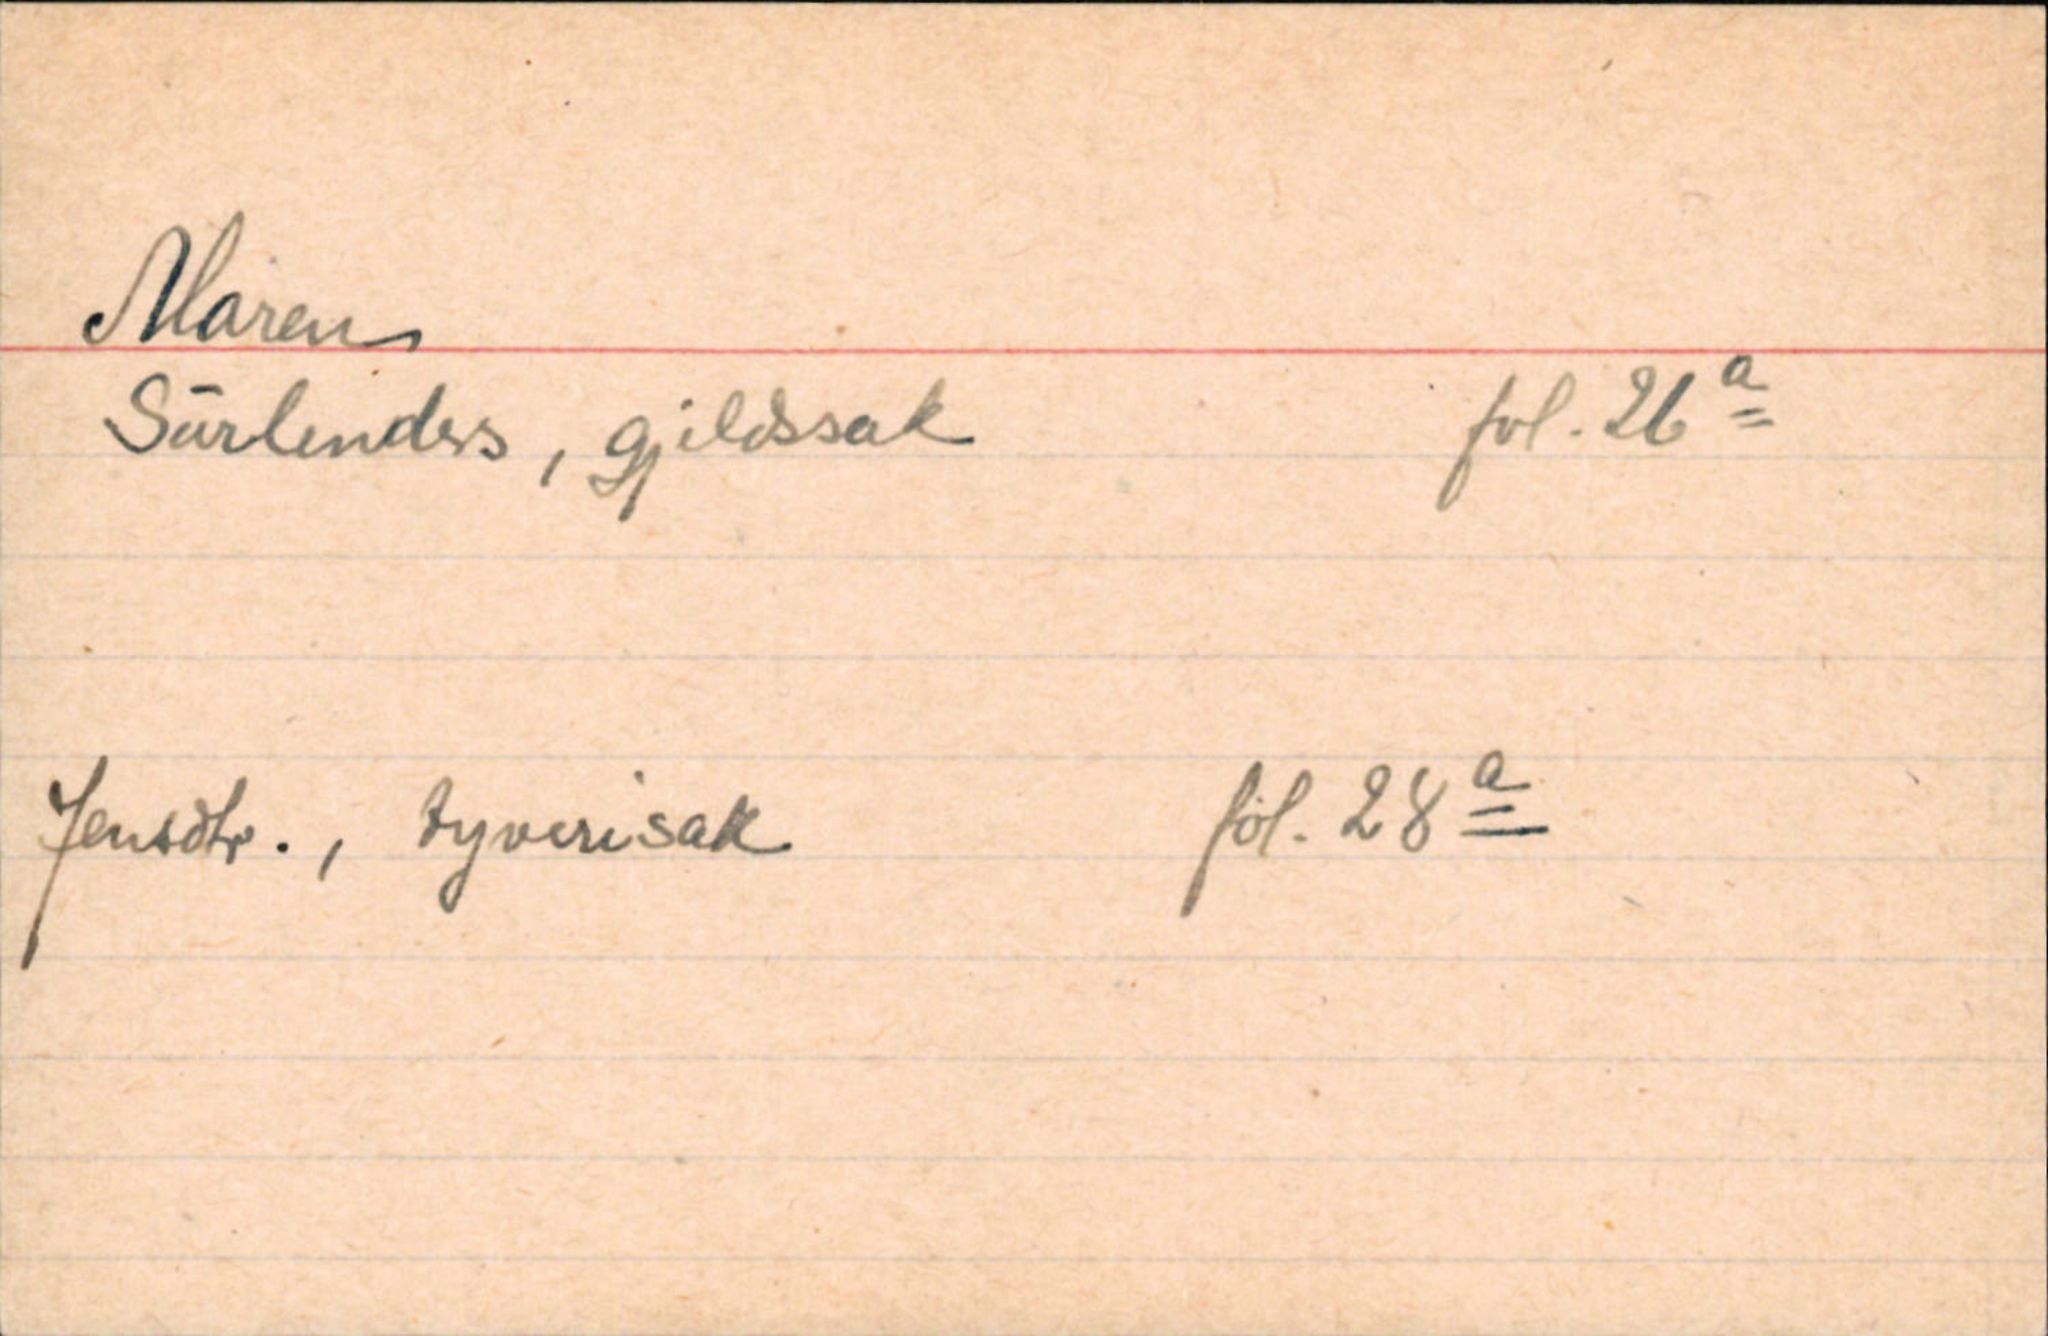 Maren
Sürlenders, gjeldssak fol. 26a
Jensdtr., tyverisak fol. 28a